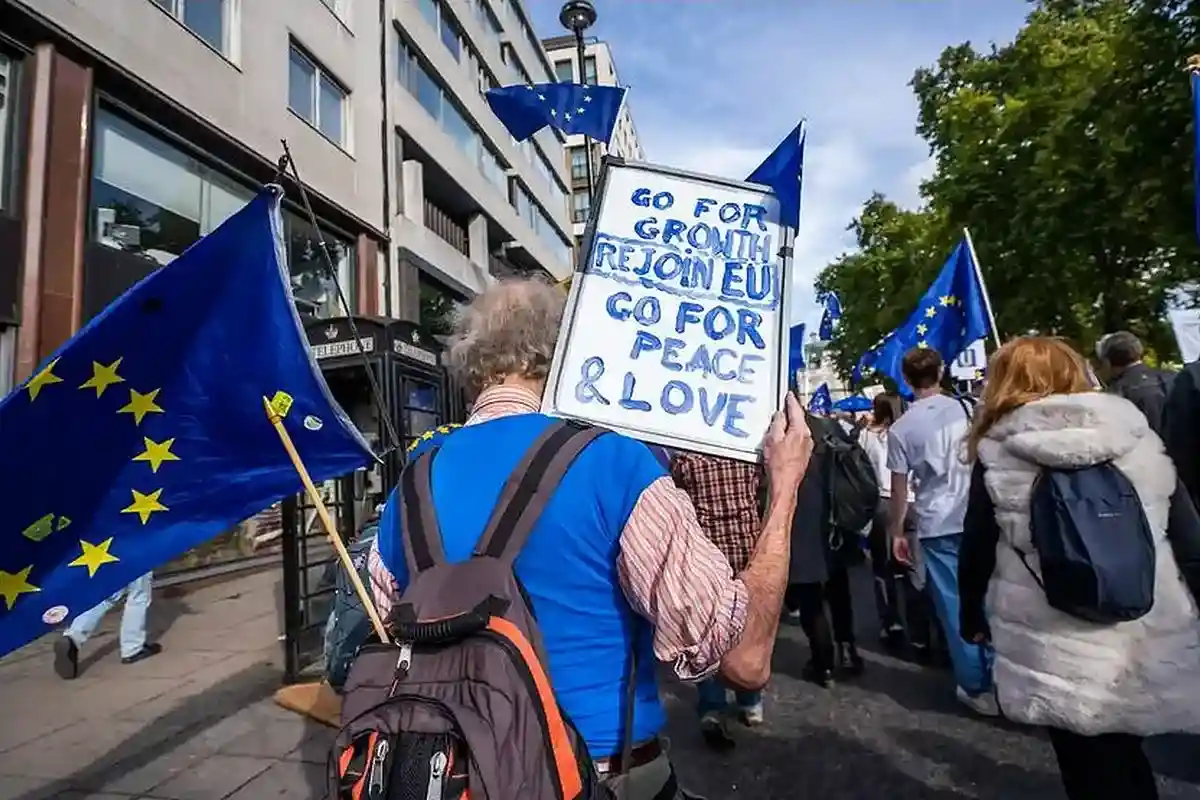 GO FOR
GROWTH
REJOIN EU
GO FOR
PEACE
& LOVE
TELEPHONE